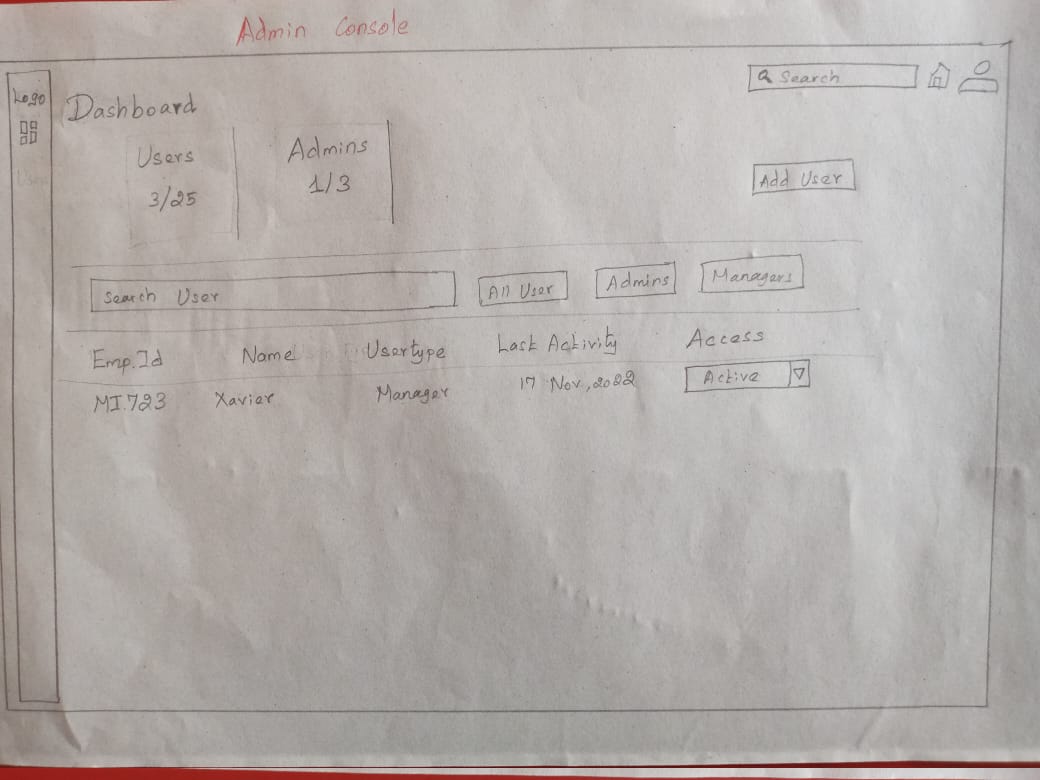 Admin Console
Logo
Search
Dashboard
Users
3/25
Admins
1/3
Add User
Search User
All User
Admins
Managers
Emp.Id Name Usertype Last Activity Access
MI.723 Xavier Manager 17 Nov,2022 Active